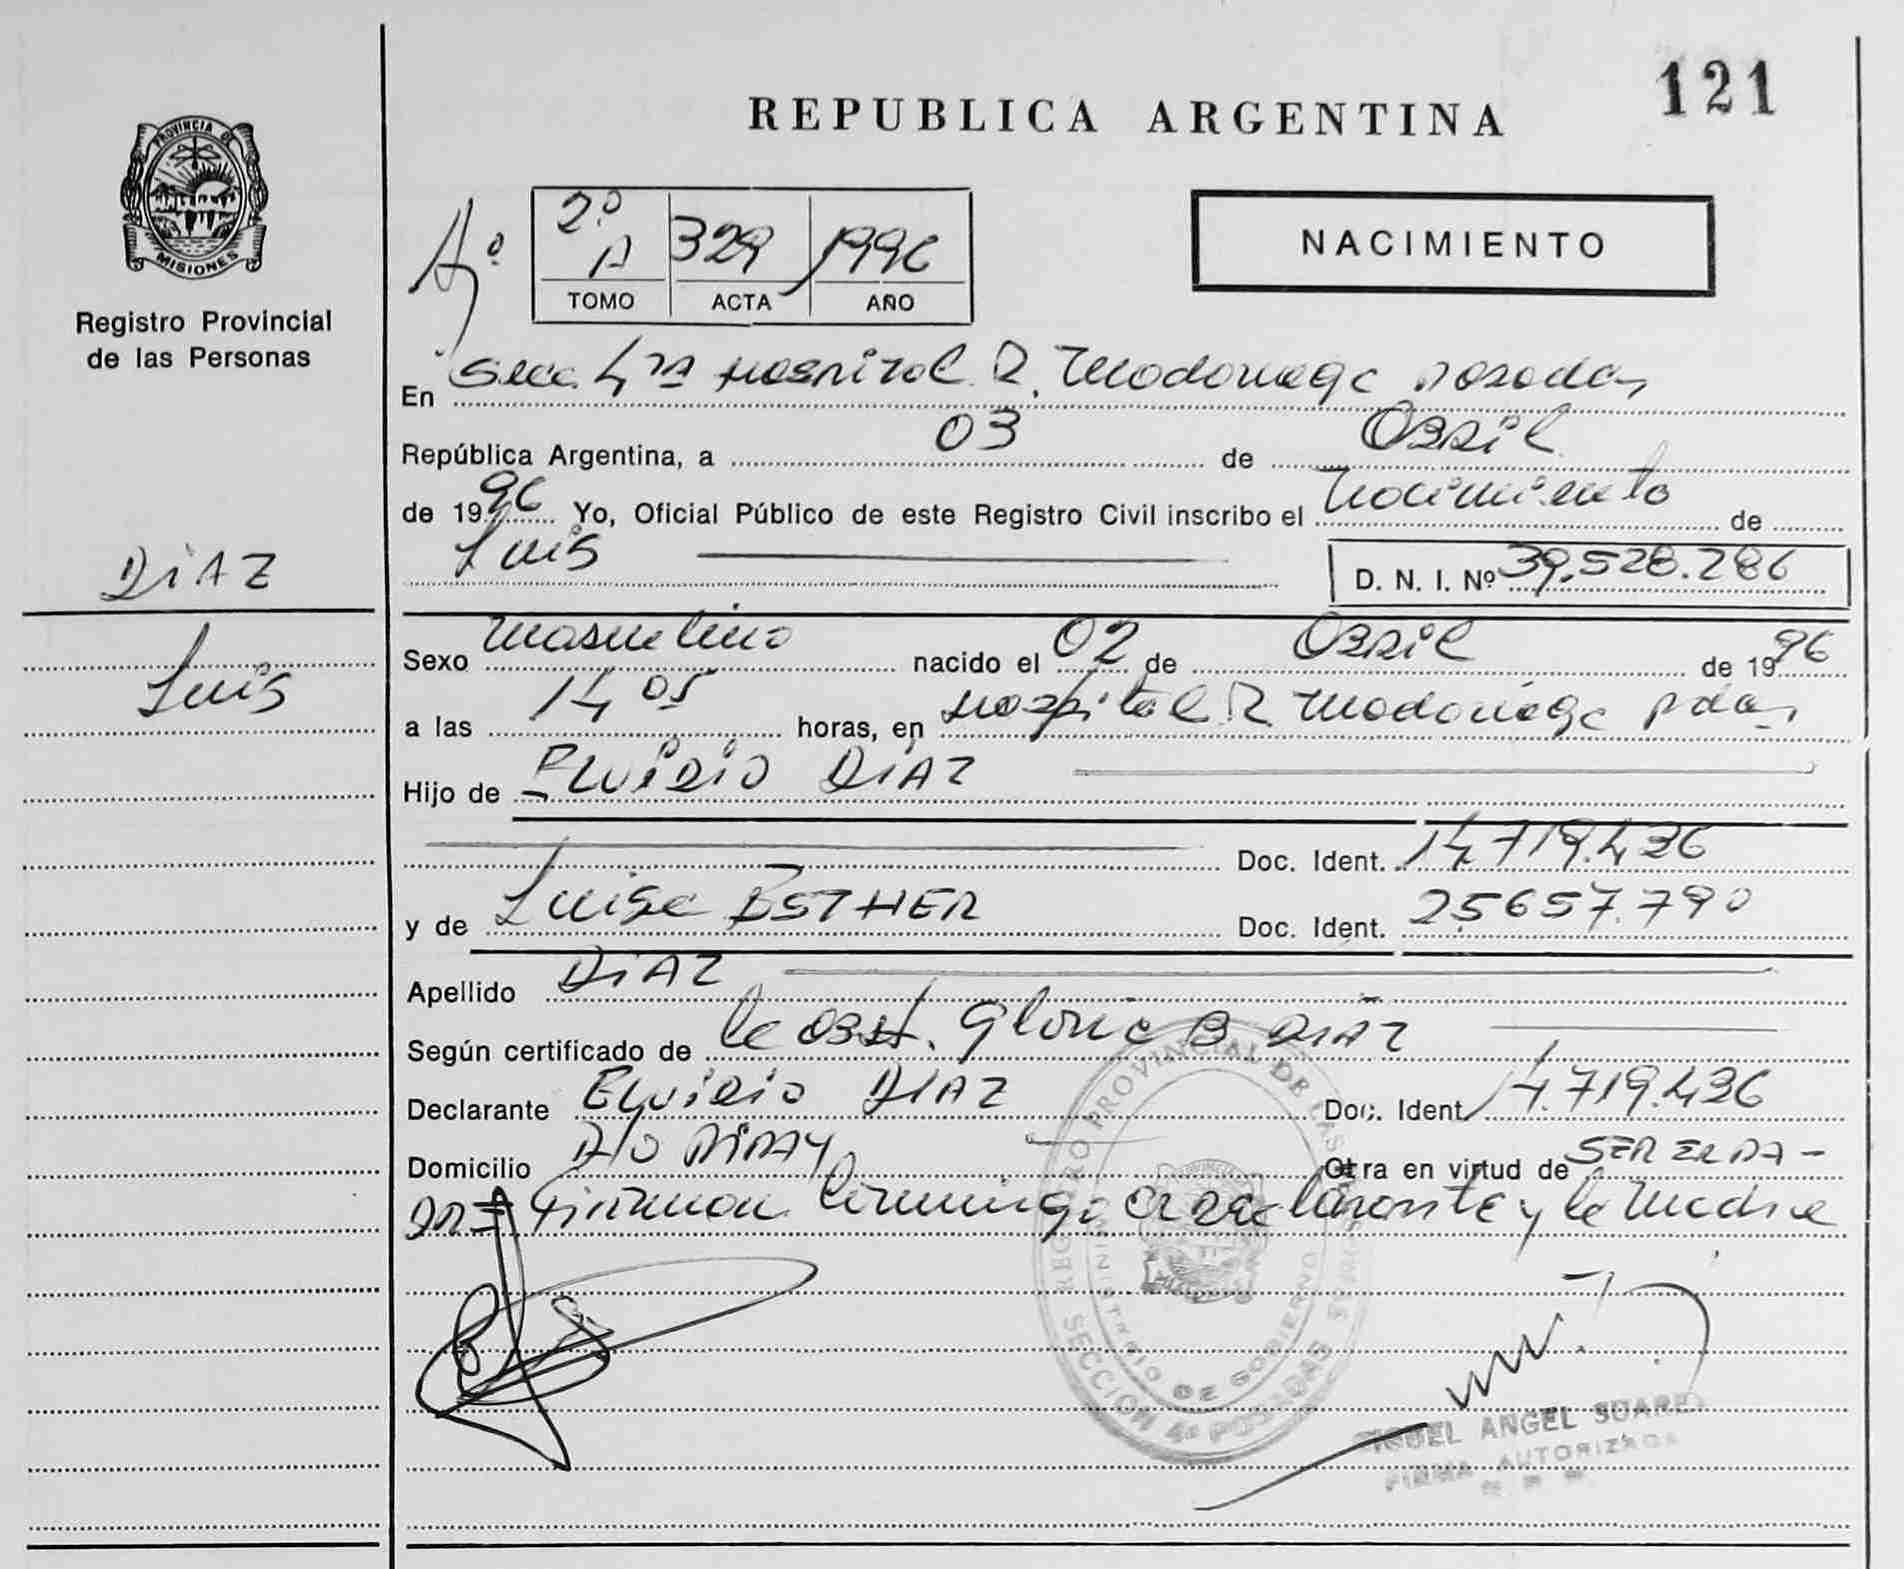 121
REPUBLICA ARGENTINA
PROVINCIA DE
MISIONES
Registro Provincial
de las Personas
2º A 329 1996
TOMO ACTA AÑO
NACIMIENTO
En Secc 4ta Hospital R. Madariaga Posadas
República Argentina, a 03 de Abril
de 1996 Yo, Oficial Público de este Registro Civil inscribo el Nacimiento de
Luis D. N. I. Nº 39.528.286
DiAZ
Luis
Sexo Masculino nacido el 02 de Abril de 1996
a las 14 05 horas, en Hospital R. Madariaga Pdas
Hijo de Elvidio DiAZ
Doc. Ident. 14.719.436
y de Luisa ESTHER Doc. Ident. 25657.790
Apellido DiAZ
Según certificado de la Obst. Gloria B DiAZ
Declarante Elvidio DiAZ Doc. Ident. 14.719.436
Domicilio Otra en virtud de SER ER PA-
DRE Firman conmigo el declarante y la Madre
REGISTRO PROVINCIAL DE LAS PERSONAS
MINISTERIO DE GOBIERNO
SECCION 4ª POSADAS
MIGUEL ANGEL SUAREZ
FIRMA AUTORIZADA